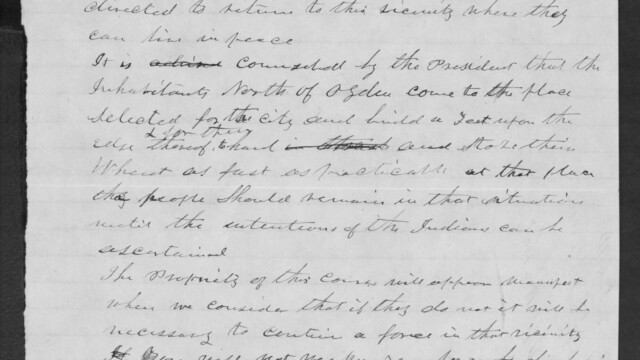 directed to return to this vicinity where they
can live in peace
It is advised counseled by the President that the
Inhabitants North of Ogden come to the place
Selected for the city and build a Fort upon the
& for them
edge thereof to haul in and Stake their
Wheat as fast as practicable at that place
the people Should remain in that situation
until the intentions of the Indians can be
ascertained
The Propriety of this Course will appear manifest
when we consider that if they do not it will be
necessary to a force in that vicinity
will not